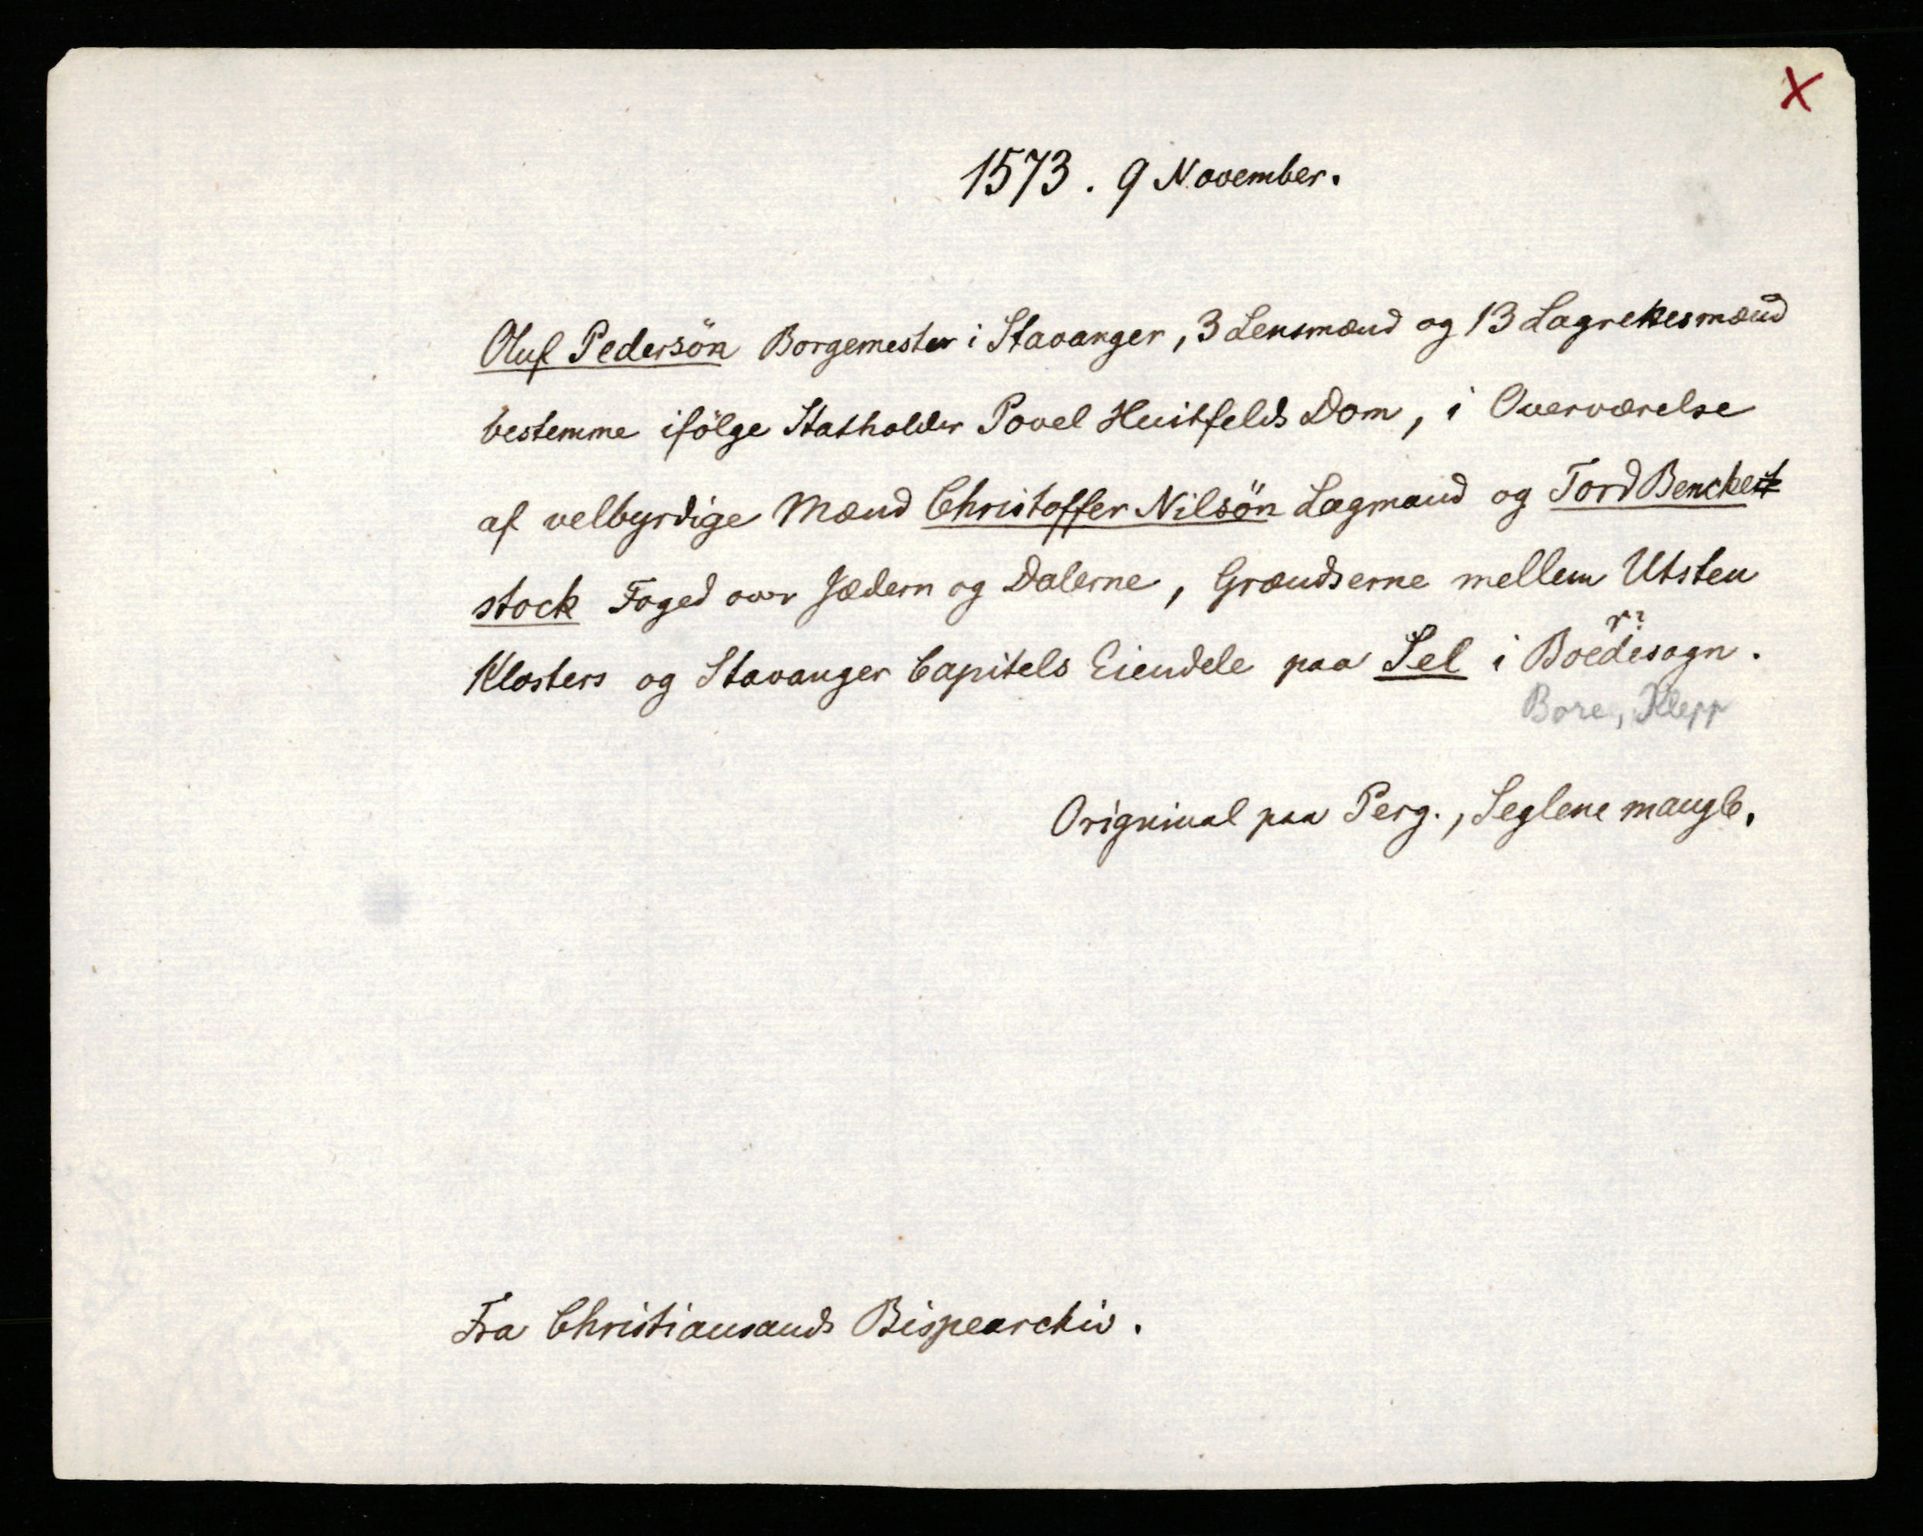 X
1573. 9 November.
Oluf Pedersön Borgemester i Stavanger, 3 Lensmænd og 13 Lagrettesmænd
bestemme ifölge Statholder Povel Huitfelds Dom, i Overværelse
af velbyrdige Mænd Christoffer Nilsön Lagmand og Tord Benckest
stock Foged over Jædern og Dalerne, Grændserne mellem Utsten
Klosters og Stavanger Capitels Eiendele paa Sel i Boedesogn.
r?
Bore, Klepp
Origninal paa Perg., Seglene mangle.
Fra Christiansands Bispearchiv.